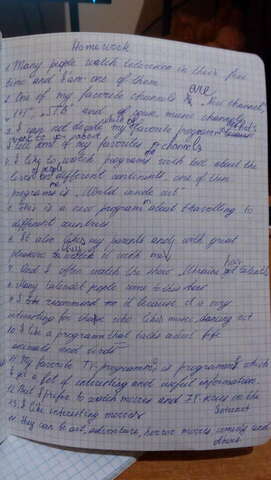 Homework
1. Many people watch television in their free
time and I am one of them
2. One of my favorite channels are New Channel,
1+1, STB and of course music channels
3. I can not decide my favorite programm
I tell about of my favorites channels
4. I try to watch programs with but about the
lives of people different continents, one of them
programs is World inside out
5. This is a new program about travelling to
different countries
6. It also likes my parents and with great
pleasure watch it with me
7. And I often watch the show Ukraine got talent
8. Many talented people come to this show
9. I recommend to it because it is very
interesting for those who like music, dancing, art
10. I like a program that talks about
animals and birds
11. My favorite TV programm is programms which
a lot of interesting and useful information.
12. But I prefer to watch movies and TV series on the
Internet
13. I like interesting movies
14. They can be art, adventure, horror movies, comedy and
others